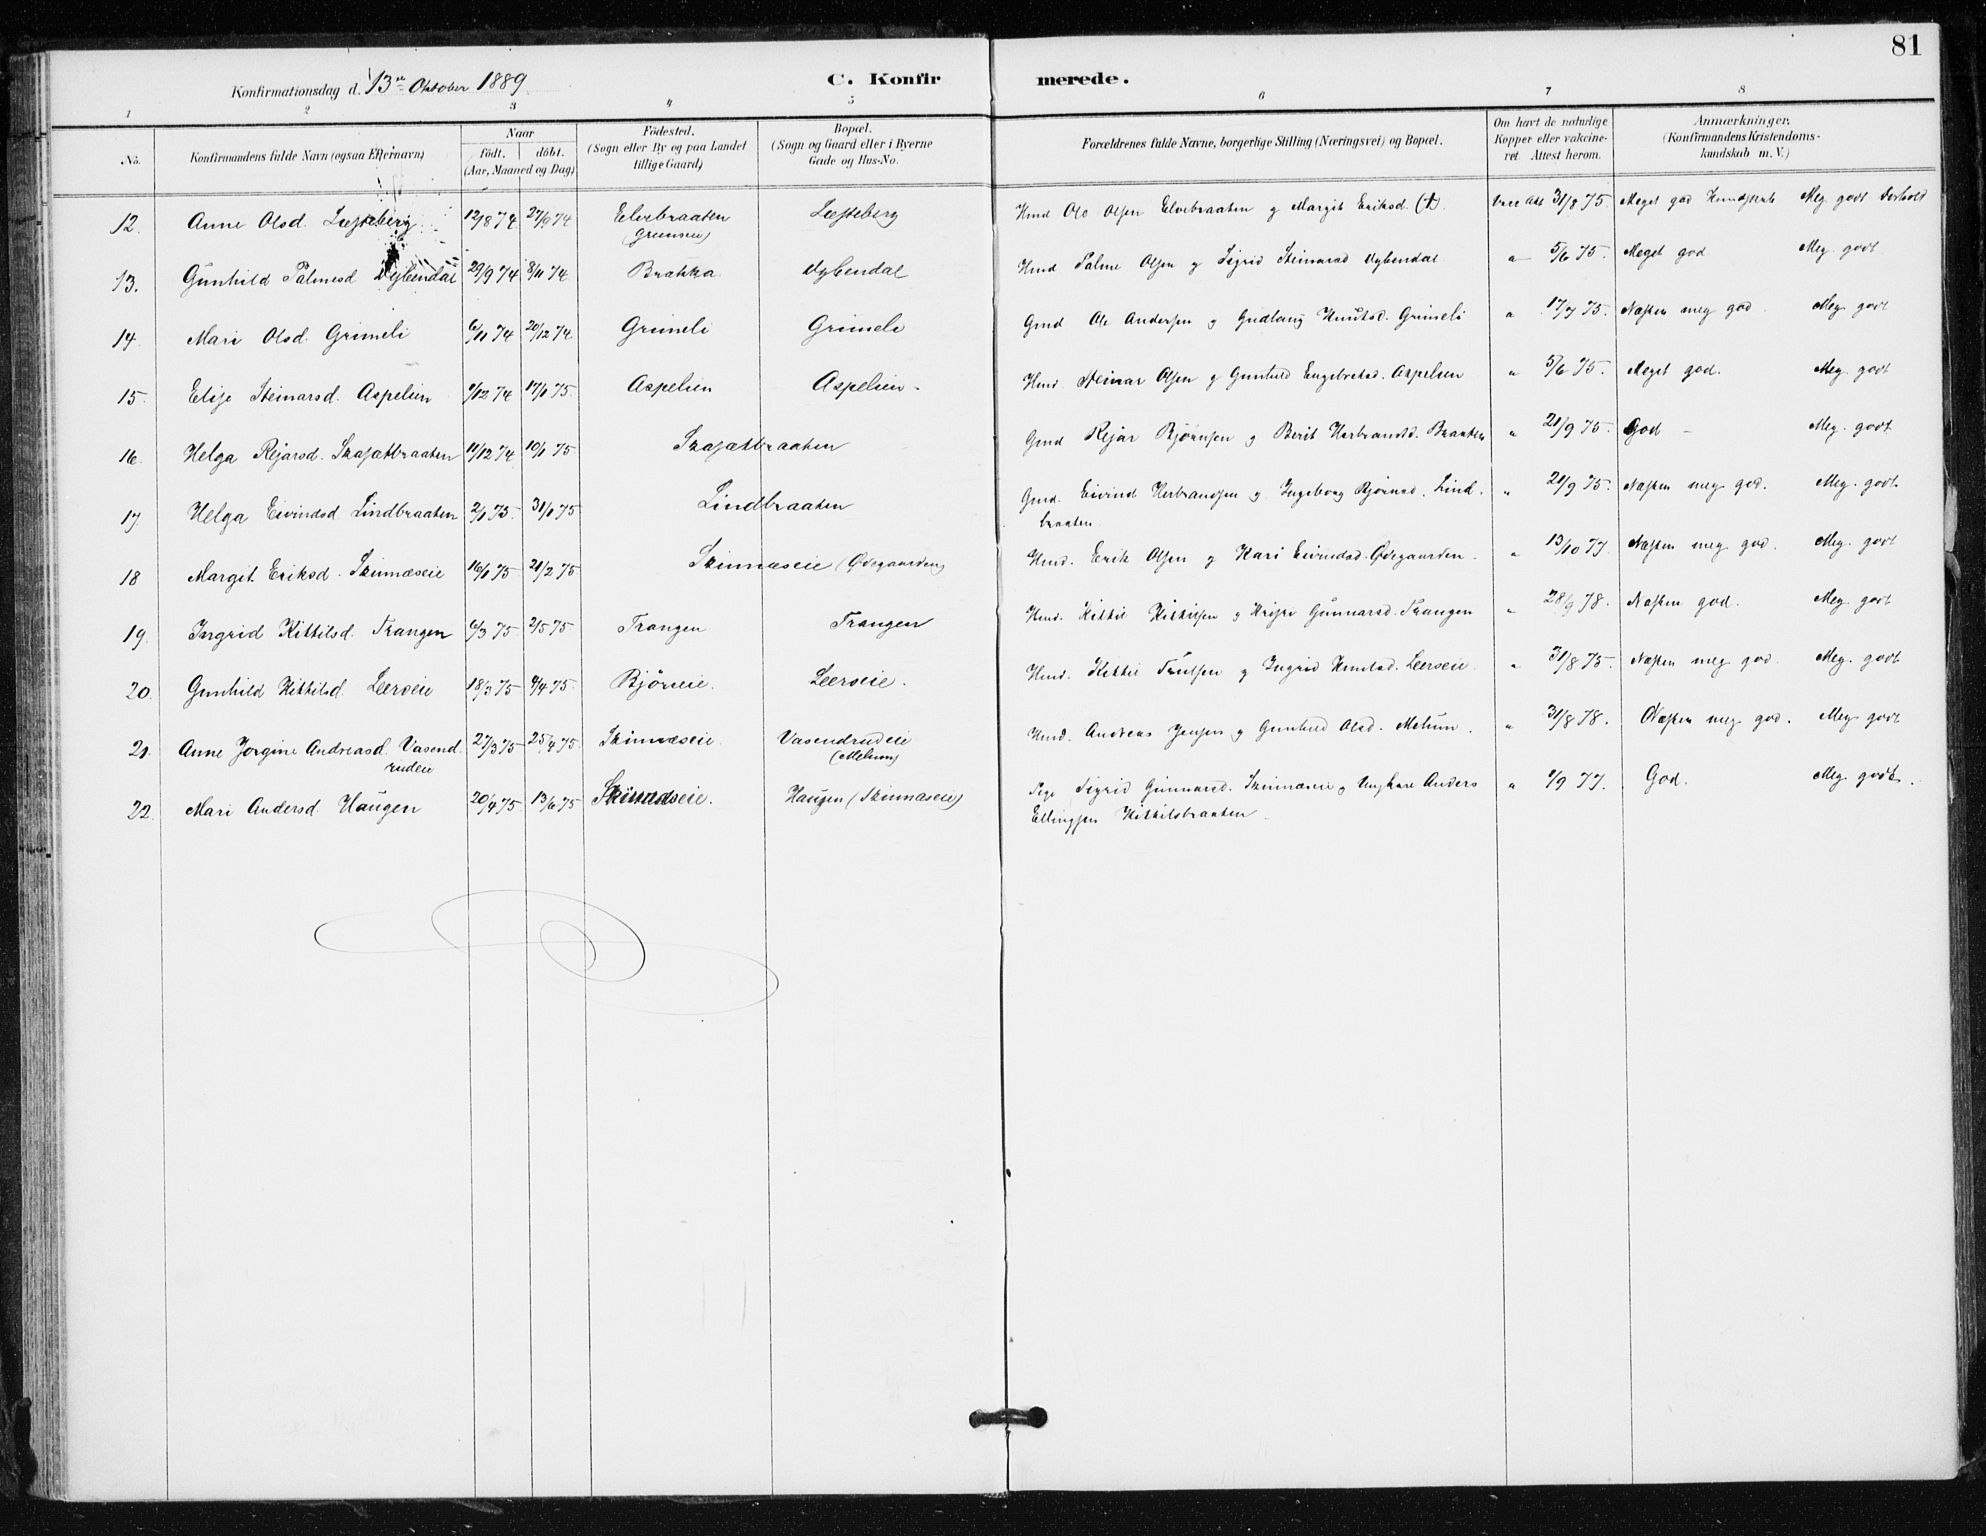 81
Konfirmationsdag d. 13de Oktober 1889
C. Konfirmerede.
1 2 3 4 5 6 7 8
No. Konfirmandens fulde Navn (ogsaa Efternavn) Naar födt. döbt. (Aar, Maaned og Dag) Födested. (Sogn eller By og paa Landet tillige Gaard) Bopæl. (Sogn og Gaard eller i Byerne Gade og Hus-No. Forældrenes fulde Navne, borgerlige Stilling (Næringsvei) og Bopæl. Om havt de naturlige Kopper eller vakcineret. Attest herom. Anmærkninger. (Konfirmandens Kristendomskundskab m. V.)
12. Anne Olsd. 12/8 74 27/9 74 Elvebraaten Hmd Ole Olsen Elvebraaten og Margit Eriksd. (†). 31/8 75. Meget god Kundskab Meg. godt Forhold
13. Gunhild Palmesd Dybendal 29/9 74 8/11 74 Bratka Dybendal Hmd Palme Olsen og Sigrid Steinarsd Dybendal " 5/6 75. Meget god Meg. godt
14. Mari Olsd. Grimeli 6/11 74 20/12 74 Grimeli Grimeli Gmd Ole Andersen og Gudlaug Knutsd. Grimeli " 17/7 75. Næsten meg god. Meg. godt
15. Elise Steinarsd. Aspelien 1/12 74 17/1 75. Aspelien Aspelien Hmd Steinar Olsen og Gunhild Engebretsd. Aspelien " 5/6 75. Meget god. Meg. godt
16. Helga Rejarsd. Skasætbraaten 11/12 74 10/1 75 Skasætbraaten Gmd Rejar Bjørnsen og Berit Herbrandsd. Braaten " 21/9 75. God - Meg. godt
17 Helga Eivindsd Lindbraaten 2/1 75. 31/1 75 Lindbraaten Gmd. Eivind Herbrandsen og Ingeborg Bjørnsd. Lind-
braaten. " 21/9 75. Næsten meg god. Meg. godt
18 Margit Eriksd. Skinnæseie 16/1 75 21/2 75 Skinnæseie (Ødegaarden) Hmd. Erik Olsen og Kari Eivindsd. Ødegaarden. " 13/10 77. Næsten meg god. Meg. godt
19. Ingrid Kittilsd. Trangen 6/3 75 2/5 75 Trangen Trangen Hmd. Kittil Kittilsen og Kristi Gunnarsd. Trangen " 28/9 78. Næsten god. Meg. godt
20. Gunhild Kittilsd. Leerseie 18/3 75 4/4 75. Björeeie. Leerseie. Hmd. Kittil Trulsen og Ingrid Knutsd. Leerseie. " 31/8 75. Næsten meg god. Meg. godt
21. Anne Jorgine Andreasd. Vasend-
rudeie 27/3 75 25/4 75. Skinnæseie. Vasendrudeie
(Melum) Hmd. Andreas Jensen og Gunhild Olsd. Melum. " 31/8 78. Næsten meg god. Meg godt
22. Mari Andersd. Haugen 20/4 75 13/6 75 Skinnæseie. Haugen (Skinnæseie) Pige Sigrid Gunnarsd. Skinnæseie og Ungkarl Anders
Ellingsen Kittilsbraaten. " 1/9 77. God. Meg godt.